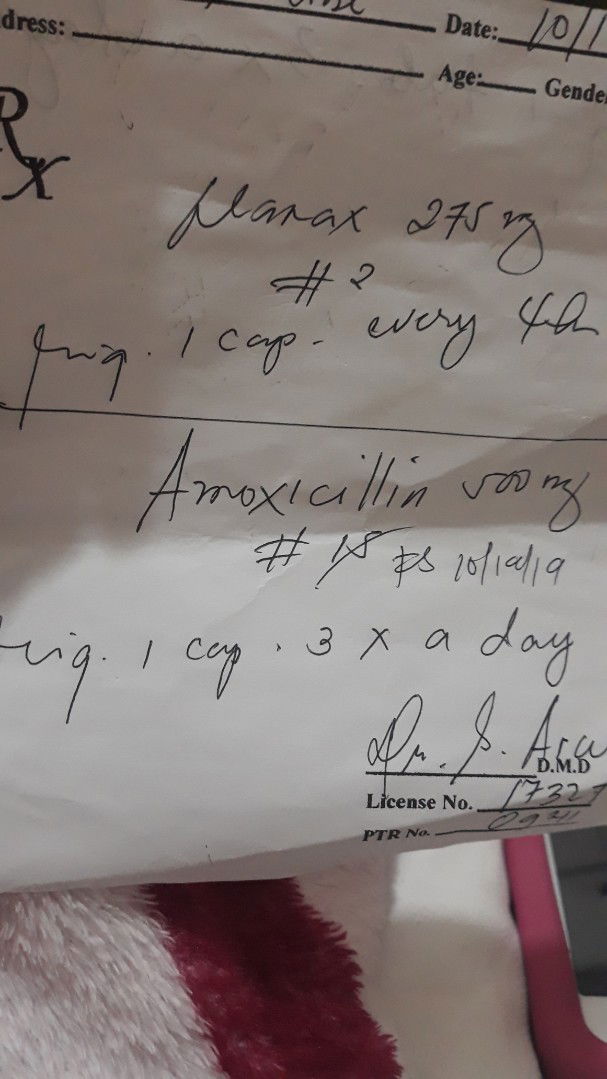 dress: Date: 10/1
Age: Gende
Rx
flanax 275 mg
# 2
Sig. 1 cap. every 4h
Amoxicillin 500 mg
# 18 10/19/19
Sig. 1 cap. 3 x a day
Dr. S.
D.M.D
License No. 17327
PTR No.